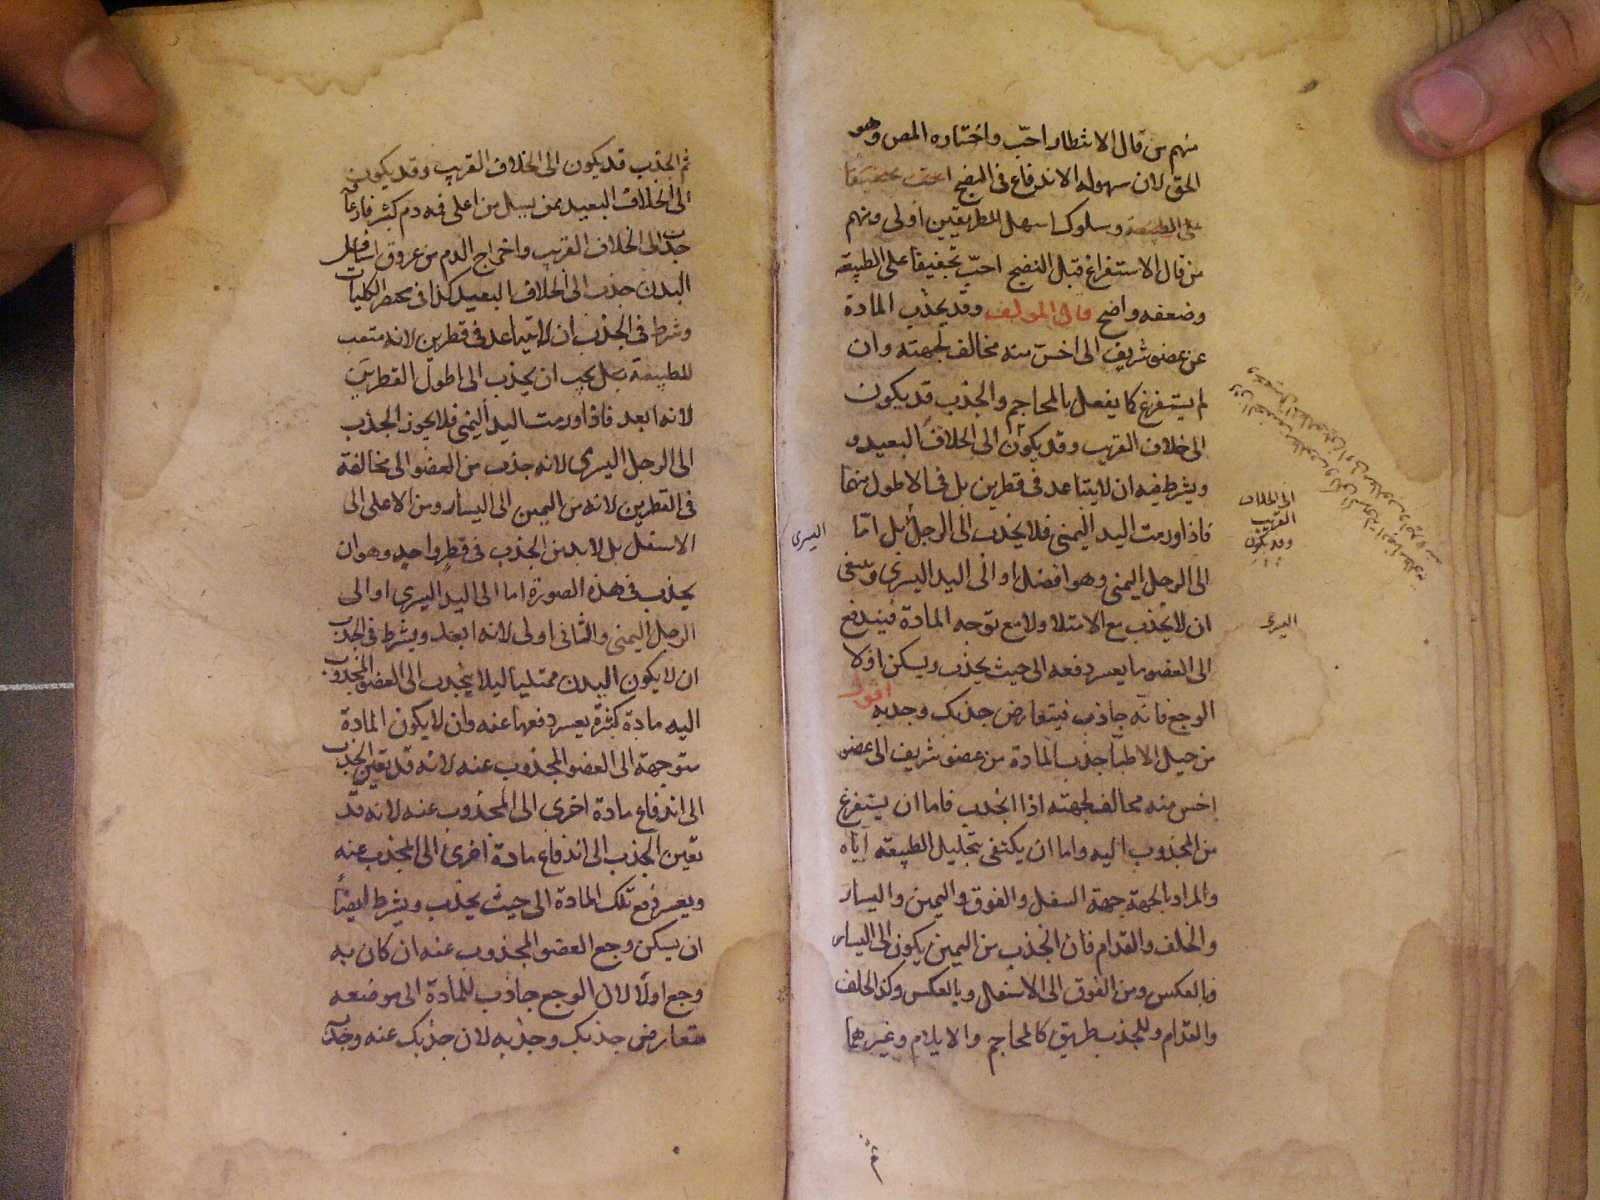 منهم من قال الانتظار احبّ واختاره المص وهو
الحق لان سهوله الاندفاع فى النضج اخف تخفيفا
على الطبيعة وسلوك اسهل الطريقين اولى ومنهم
من قال الاستفراغ قبل النضج احبّ تخفيفا على الطبيعة
وضعفه واضح قال المولف وقد يجذب المادة
عن عضو شريف الى اخسّ منه مخالف لجهته وان
لم يستفرغ كما يفعل بالمحاجم والجذب قد يكون
الى خلاف القريب وقد يكون الى الخلاف البعيد و
ويشرط فيه ان لا يتباعد فى قطرين بل فى الاطول منهما
فاذا ورمت اليد اليمنى فلا يجذب الى الرجل بل امّا
اليسرى
الى الرجل اليمنى وهو افضل او الى اليد اليسرى وينبغى
ان لا يجذب مع الامتلا ولا مع توجه المادة فيندفع
الى العضو ما يعسر دفعه الى حيث يجذب ويسكن اولا
الوجع فانه جاذب فيتعارض جذبك وجذبه اقول
من حيل الاطبّا جذب المادة من عضو شريف الى عضو
اخس منه مخالف لجهته اذا انجذب فاما ان يستفرغ
من المجذوب اليه واما ان يكتفى بتحليل الطبيعة اياه
والمراد بالجهة جهة السفل والفوق واليمين واليسار
والخلف والقدام فان الجذب من اليمين يكون الى اليسار
وبالعكس ومن الفوق الى الاسفل وبالعكس وكذا الخلف
والقدام وللجذب طريق كالمحاجم والايلام وغيرهما
الى الخلاف
القريب
وقد يكون
اليسرى
ثم الجذب قد يكون الى الخلاف القريب وقد يكون
الى الخلاف البعيد فمن يسيل من اعلى فمه دم كثير فارعافه
جذب الى الخلاف القريب واخراج الدم من عروق اسافل
البدن جذب الى الخلاف البعيد كذا فى مختصر الكليات
وشرط فى الجذب ان لا يتباعد فى قطرين لانه متعب
للطبيعة بل يجب ان يجذب الى اطول القطرين
لانه ابعد فاذا ورمت اليد اليمنى فلا يجوز الجذب
الى الرجل اليسرى لانه جذب من العضو الى مخالفة
فى القطرين لانه من اليمين الى اليسار ومن الاعلى الى
الاسفل بل لابد من الجذب فى قطر واحد وهو ان
يجذب فى هذه الصورة اما الى اليد اليسرى او الى
الرجل اليمنى والثانى اولى لانه ابعد ويشرط فى الجذب
ان لا يكون البدن ممتليا ليلا ينجذب الى العضو المجذوب
اليه مادة كثيرة يعسر دفعها عنه وان لا يكون المادة
متوجهة الى العضو المجذوب عنه لانه قد تعين الجذب
الى اندفاع مادة اخرى الى المجذوب عنه لانه قد
تعين الجذب الى اندفاع مادة اخرى الى المجذب عنه
ويعسر دفع تلك المادة الى حيث يجذب ويشرط ايضاً
ان يسكن وجع العضو المجذوب عنه ان كان به
وجع اولا لان الوجع جاذب للمادة الى موضعه
فتعارض جذبك وجذبه لان جذبك عنه وجذبه